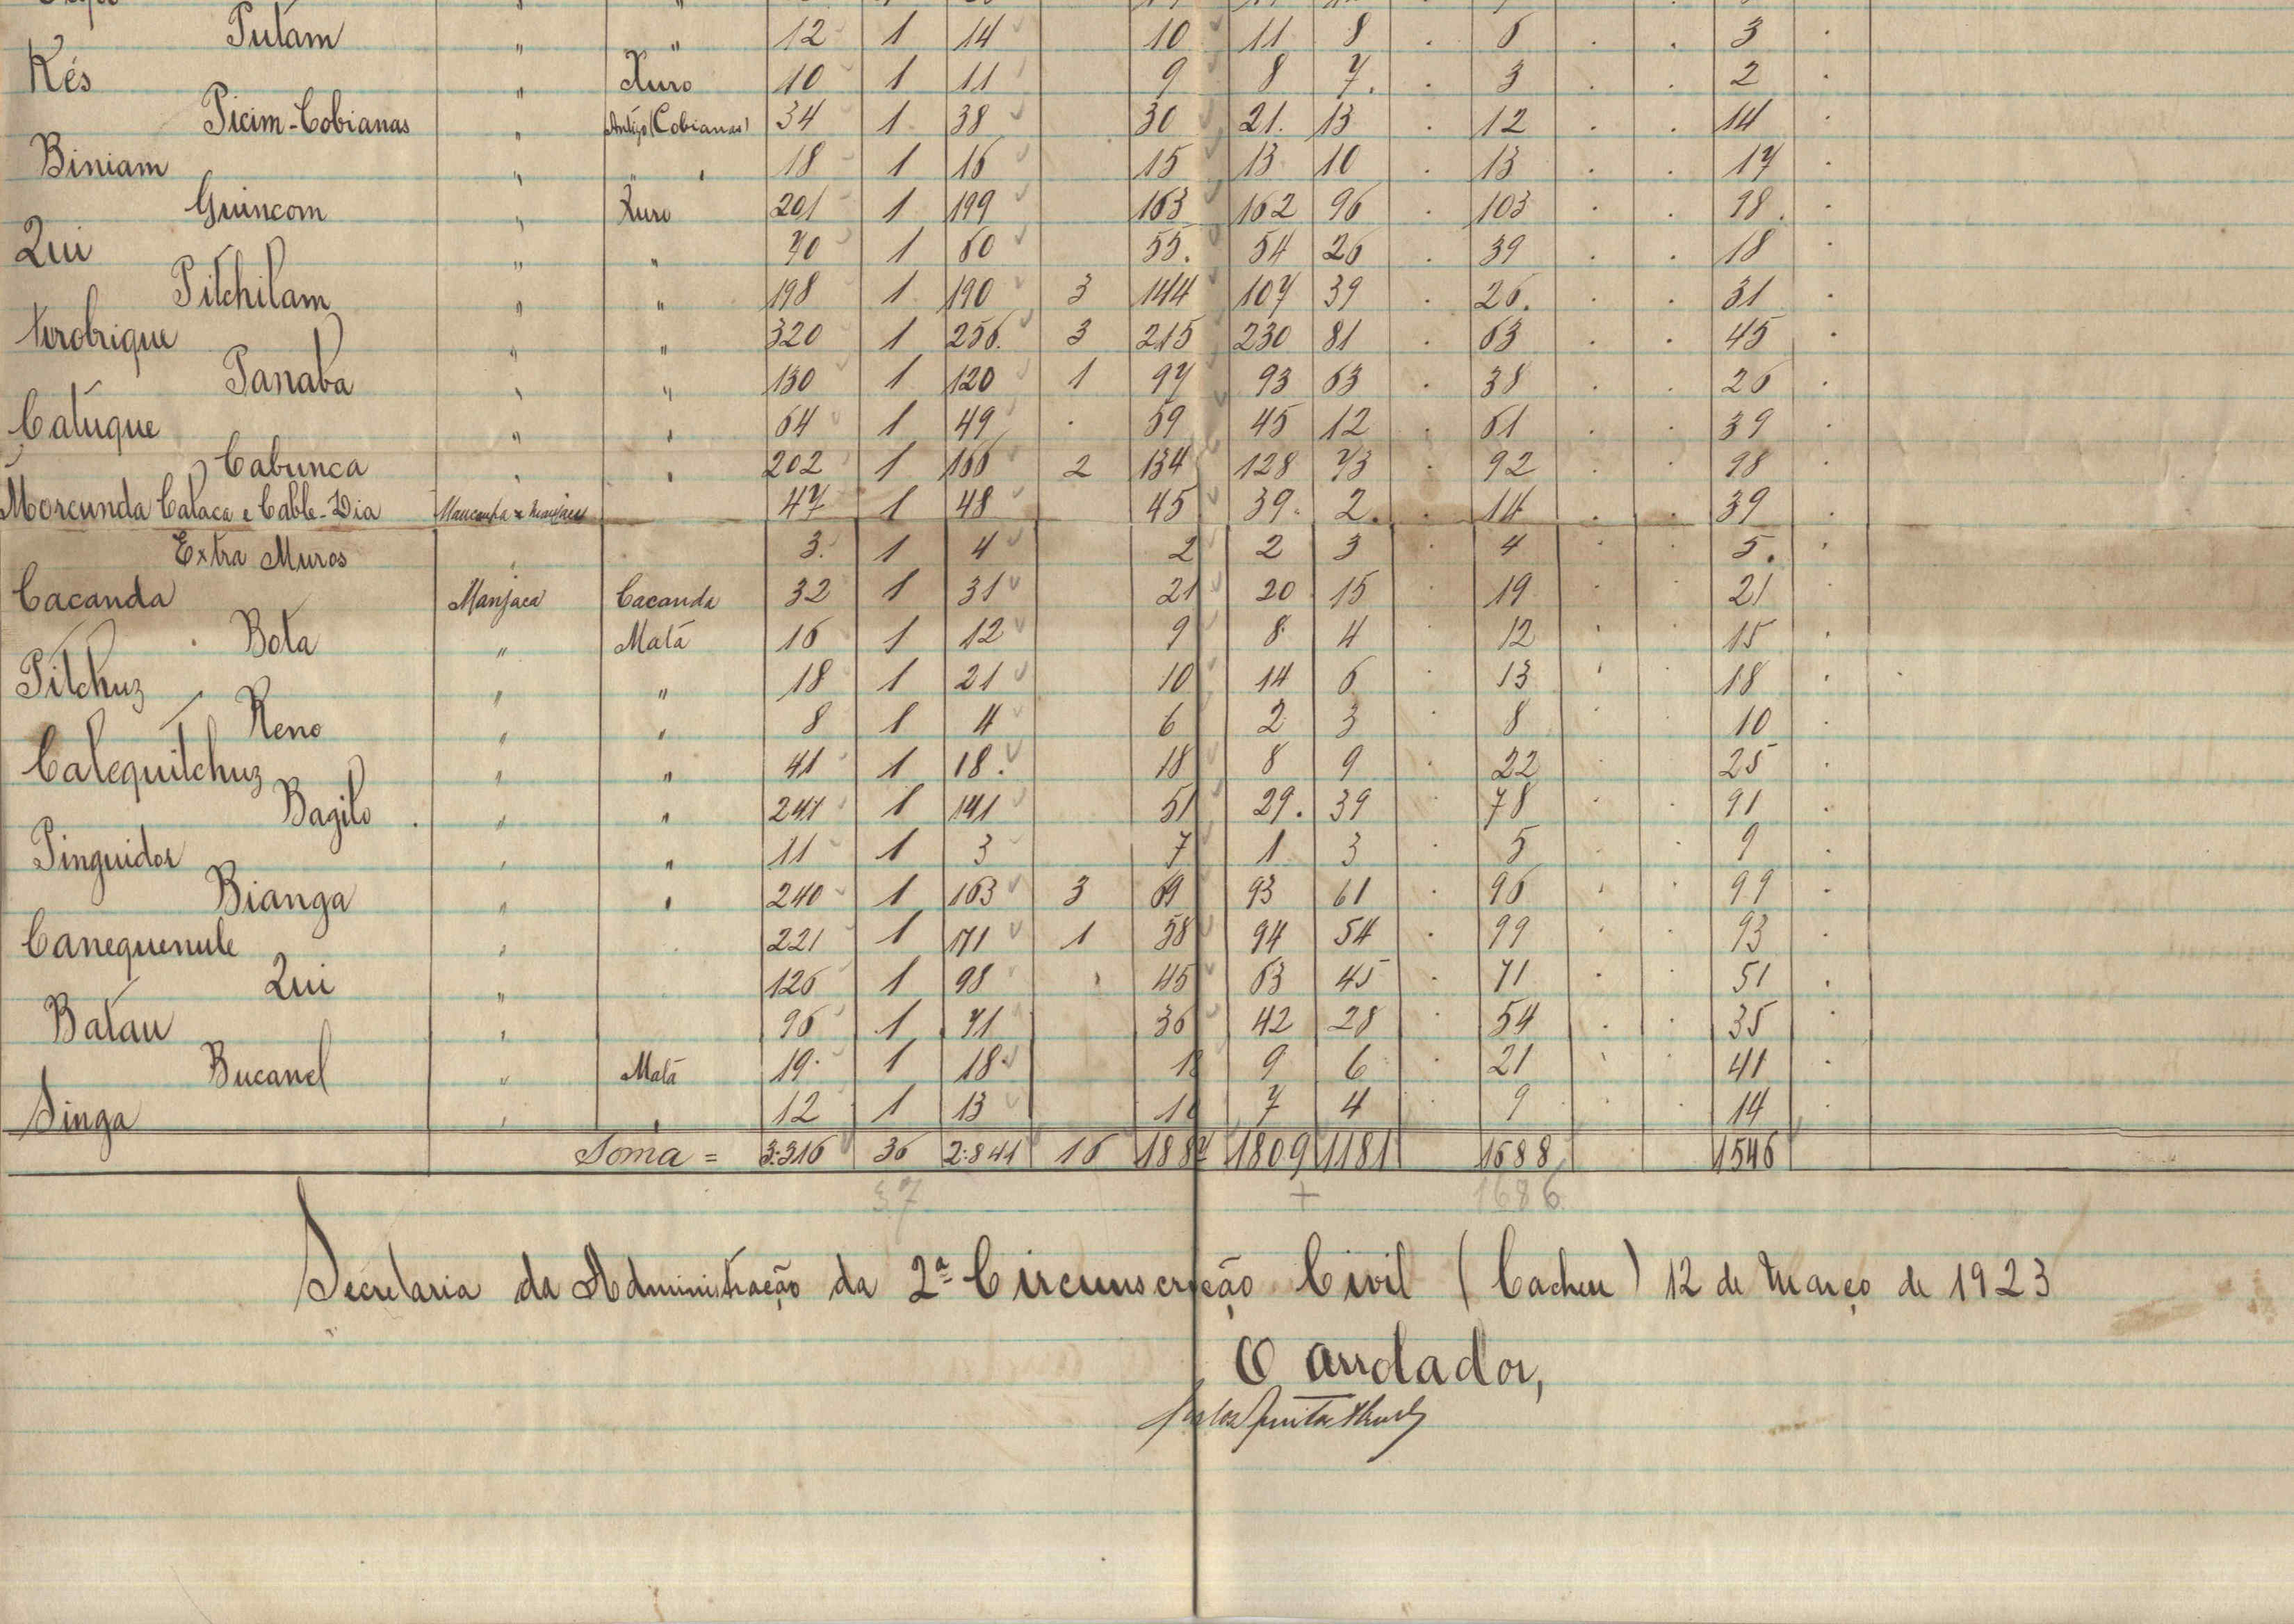 Putam " " 12 1 14 10 11 8 . 6 . . 3 .
Kés " Xuro 10 1 11 9 8 7 . 3 . . 2 .
Picim-Cobianas " Antigo (Cobianas) 34 1 38 30 21 13 . 12 . . 14 .
Biniam " " 18 1 16 15 13 10 . 13 . . 17 .
Guincom " Xuro 201 1 199 163 162 96 . 103 . . 98 .
Qui " " 70 1 60 55 54 26 . 39 . . 18 .
Pitchilam " " 198 1 190 3 144 107 39 . 26 . . 31 .
" " 320 1 256 3 215 230 81 . 63 . . 45 .
Panaba " " 130 1 120 1 97 93 63 . 38 . . 26 .
Catuque " " 64 1 49 . 59 45 12 . 61 . . 39 .
Cabunca " " 202 1 166 2 134 128 73 . 92 . . 98 .
Morcunda Calaca e Cable-Dia 47 1 48 45 39 2 . 14 . . 39 .
Extra Muros " 3 1 4 2 2 3 . 4 . . 5 .
Cacanda Manjaca Cacanda 32 1 31 21 20 15 . 19 . . 21 .
Bota " Matá 16 1 12 9 8 4 . 12 . . 15 .
Pitchuz " " 18 1 21 10 14 6 . 13 . . 18 .
Reno " " 8 1 4 6 2 3 . 8 . . 10 .
Calequitchuz " " 41 1 18 18 8 9 . 22 . . 25 .
Bagilo " " 241 1 141 51 29 39 . 78 . . 91 .
Pinguidor " " 11 1 3 7 1 3 . 5 . . 9 .
Bianga " " 240 1 163 3 69 93 61 . 96 . . 99 .
Canequenule " 221 1 171 1 58 94 54 . 99 . . 93 .
Qui " 126 1 98 . 45 63 45 . 71 . . 51 .
Batau " 96 1 71 36 42 28 . 54 . . 35 .
Bucanel " Matá 19 1 18 9 6 . 21 . . 41 .
Singa " " 12 1 13 7 4 . 9 . . 14 .
Soma = 3:316 36 2:841 16 1887 1809 1181 1688 1546
37 + 1686
Secretaria da Administração da 2ª Circunscrição Civil (Cacheu) 12 de Março de 1923
O arrolador,